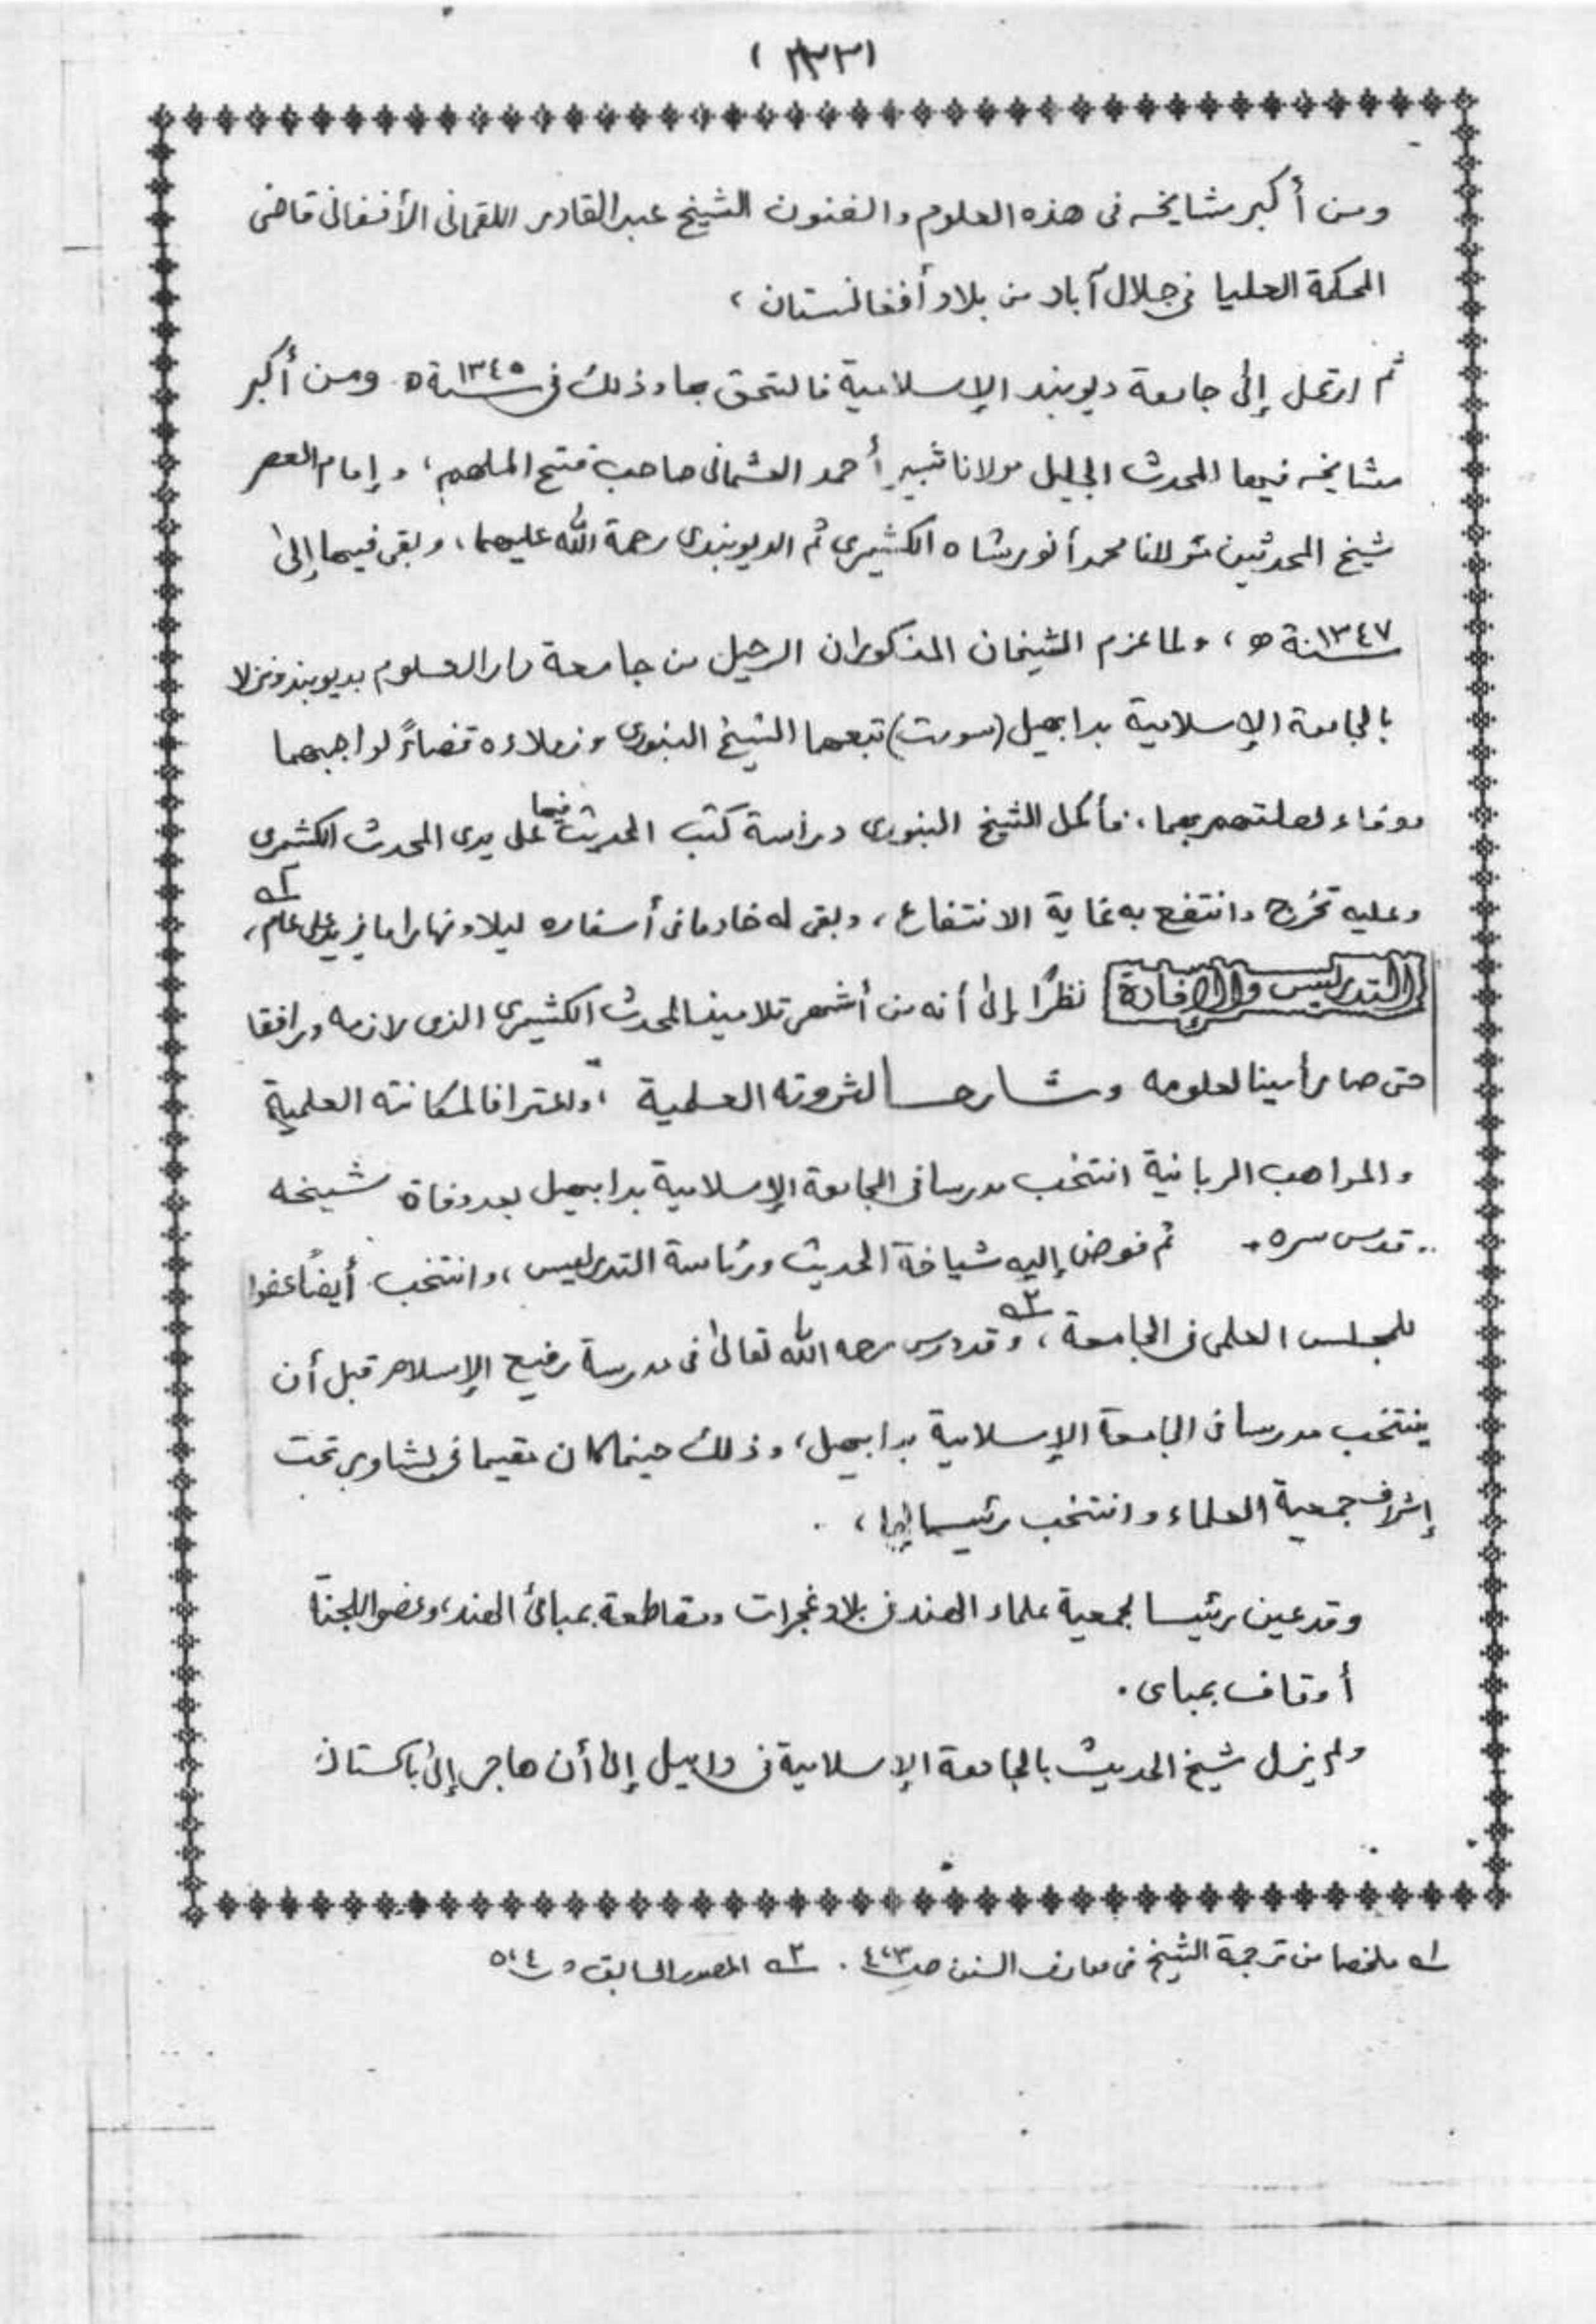 ومن أكبر مشايخه فى هذه العلوم والفنون الشيخ عبد القادر اللقمانى الأفغانى قاضى
المحكمة العليا فى جلال آباد من بلاد أفغانستان ،
ثم ارتحل إلى جامعة ديوبند الإسلامية فالتحق بها وذلك فى سنة ١٣٤٥ه ومن أكبر
مشايخه فيها المحدث الجليل مولانا شبير أحمد العثمانى صاحب فتح الملهم ، وإمام العصر
شيخ المحدثين مولانا محمد أنور شاه الكشميرى ثم الديوبندى رحمة الله عليهما ، وبقى فيها إلى
سنة ١٣٤٧ ه ، ولما عزم الشيخان المذكوران الرحيل من جامعة دار العلوم بديوبند ونزلا
بالجامعة الإسلامية بدابهيل (سورت) تبعهما الشيخ البنورى وزملاءه قضاءً لواجبهما
ووفاء لصلتهم بهما ، فأكمل الشيخ البنورى دراسة كتب الحديث فيها على يدى المحدث الكشميرى
وعليه تخرج وانتفع به غاية الانتفاع ، وبقى له خادما فى أسفاره ليلا ونهارا ما يزيد على عام ، ١ه
التدريس والإفادة نظرًا إلى أنه من أشهر تلاميذ المحدث الكشميرى الذى لازمه ورافقا
حتى صار أمينا لعلومه وشارحا لثروته العلمية ، ولاعترافا لمكانته العلمية
والمواهب الربانية انتخب مدرسا فى الجامعة الإسلامية بدابهيل بعد وفاة شيخه
قدس سره . ثم فوض إليه شياخة الحديث ورئاسة التدريس ، وانتخب أيضًا عضوا
للمجلس العلمى فى الجامعة ، ٢ه وقد درس رحمه الله تعالى فى مدرسة رفيع الإسلام قبل أن
ينتخب مدرسا فى الجامعة الإسلامية بدابهيل ، وذلك حينما كان مقيما فى بشاور تحت
إشراف جمعية العلماء وانتخب رئيسا لها ، .
وقد عين رئيسا لجمعية علماء الهند فى بلاد غجرات ومقاطعة بمبائ الهند ، وعضوا للجنة
أوقاف بمباى .
ولم يزل شيخ الحديث بالجامعة الإسلامية فى دابيل إلى أن هاجر إلى باكستان
١ه ملخصا من ترجمة الشيخ فى معارف السنن ص ٤،٣ . ٢ه المصدر السابق ص ٥،٤